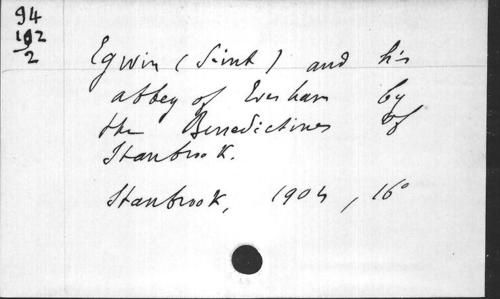 94
192
2
Egwin (Saint) and his
abbey of Evesham by
the Benedictines of
Stanbrook.
Stanbrook, 1904, 16°